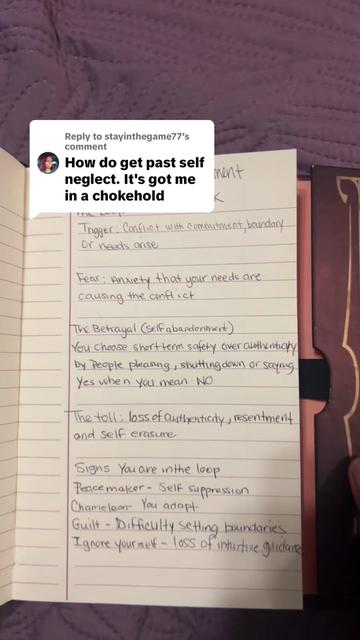 Reply to stayinthegame77's
comment
How do get past self
neglect. It's got me
in a chokehold
Trigger: Conflict with commitment, boundary
or needs arise
Fear: Anxiety that your needs are
causing the conflict
The Betrayal (self abandonment)
You choose short term safety over authenticity
by People pleasing, shutting down or saying
Yes when you mean NO
The toll: loss of authenticity, resentment
and self erasure
Signs You are in the loop
Peacemaker - Self suppression
Chameleon You adapt
Guilt - Difficulty setting boundaries
Ignore yourself - loss of intuitive guidance